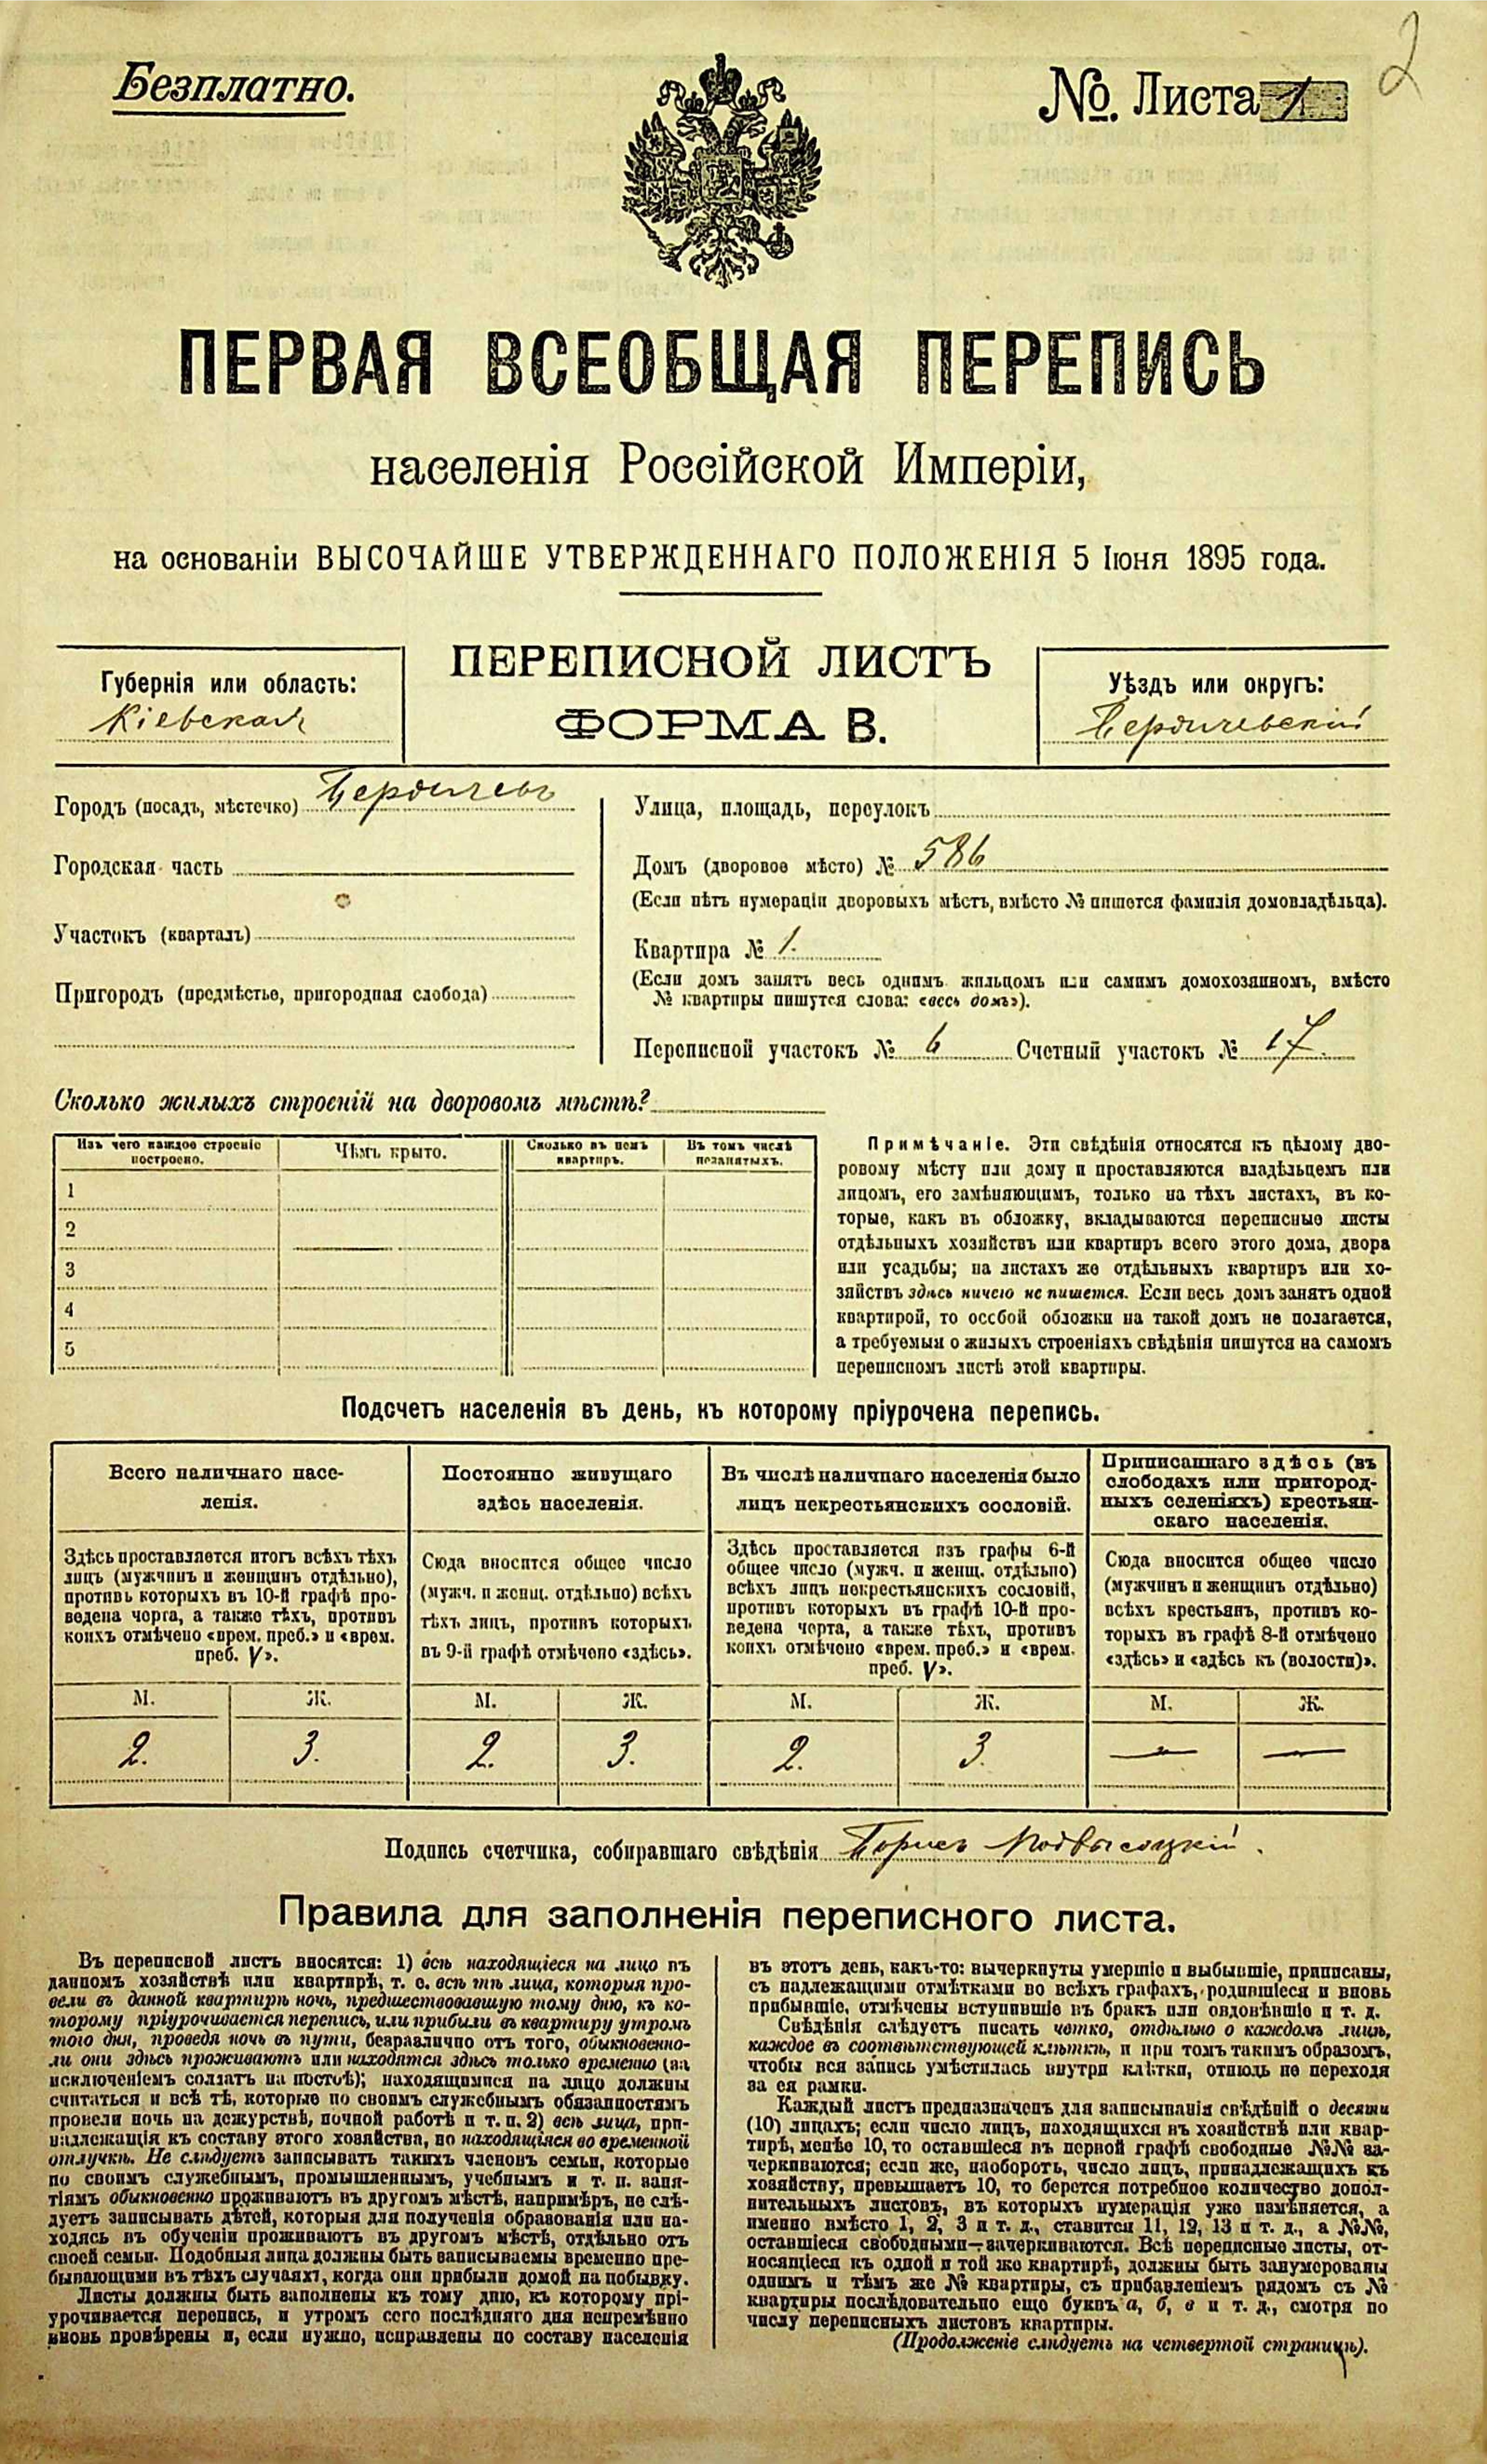 2
Безплатно.
№. Листа 1
ПЕРВАЯ ВСЕОБЩАЯ ПЕРЕПИСЬ
населенія Россійской Имперіи,
на основаніи ВЫСОЧАЙШЕ УТВЕРЖДЕННАГО ПОЛОЖЕНІЯ 5 Іюня 1895 года.
ПЕРЕПИСНОЙ ЛИСТЪ
ФОРМА В.
Губернія или область:
Кіевская
Уѣздъ или округъ:
Бердичевскій
Городъ (посадъ, мѣстечко) Бердичевъ
Городская часть
Участокъ (кварталъ)
Пригородъ (предмѣстье, пригородная слобода)
Улица, площадь, переулокъ
Домъ (дворовое мѣсто) № 586
(Если нѣтъ нумераціи дворовыхъ мѣстъ, вмѣсто № пишется фамилія домовладѣльца).
Квартира № 1.
(Если домъ занятъ весь однимъ жильцомъ или самимъ домохозяиномъ, вмѣсто
№ квартиры пишутся слова: «весь домъ»).
Переписной участокъ № 6 Счетный участокъ № 17.
Сколько жилыхъ строеній на дворовомъ мѣстѣ?
Изъ чего каждое строеніе построено.
Чѣмъ крыто.
Сколько въ немъ квартиръ.
Въ томъ числѣ незанятыхъ.
1
2
3
4
5
Примѣчаніе. Эти свѣдѣнія относятся къ цѣлому дво-
ровому мѣсту или дому и проставляются владѣльцемъ или
лицомъ, его замѣняющимъ, только на тѣхъ листахъ, въ ко-
торые, какъ въ обложку, вкладываются переписные листы
отдѣльныхъ хозяйствъ или квартиръ всего этого дома, двора
или усадьбы; на листахъ же отдѣльныхъ квартиръ или хо-
зяйствъ здѣсь ничего не пишется. Если весь домъ занятъ одной
квартирой, то особой обложки на такой домъ не полагается,
а требуемыя о жилыхъ строеніяхъ свѣдѣнія пишутся на самомъ
переписномъ листѣ этой квартиры.
Подсчетъ населенія въ день, къ которому пріурочена перепись.
Всего наличнаго насе-
ленія.
Здѣсь проставляется итогъ всѣхъ тѣхъ
лицъ (мужчинъ и женщинъ отдѣльно),
противъ которыхъ въ 10-й графѣ про-
ведена черта, а также тѣхъ, противъ
коихъ отмѣчено «врем. преб.» и «врем.
преб. V».
М. Ж.
2. 3.
Постоянно живущаго
здѣсь населенія.
Сюда вносится общее число
(мужч. и женщ. отдѣльно) всѣхъ
тѣхъ лицъ, противъ которыхъ
въ 9-й графѣ отмѣчено «здѣсь».
М. Ж.
2. 3.
Въ числѣ наличнаго населенія было
лицъ некрестьянскихъ сословій.
Здѣсь проставляется изъ графы 6-й
общее число (мужч. и женщ. отдѣльно)
всѣхъ лицъ некрестьянскихъ сословій,
противъ которыхъ въ графѣ 10-й про-
ведена черта, а также тѣхъ, противъ
коихъ отмѣчено «врем. преб.» и «врем.
преб. V».
М. Ж.
2. 3.
Приписаннаго здѣсь (въ
слободахъ или пригород-
ныхъ селеніяхъ) крестьян-
скаго населенія.
Сюда вносится общее число
(мужчинъ и женщинъ отдѣльно)
всѣхъ крестьянъ, противъ ко-
торыхъ въ графѣ 8-й отмѣчено
«здѣсь» и «здѣсь къ (волости)».
М. Ж.
— —
Подпись счетчика, собиравшаго свѣдѣнія Борисъ Подвысоцкій.
Правила для заполненія переписного листа.
Въ переписной листъ вносятся: 1) всѣ находящіеся на лицо въ
данномъ хозяйствѣ или квартирѣ, т. е. всѣ тѣ лица, которыя про-
вели въ данной квартирѣ ночь, предшествовавшую тому дню, къ ко-
торому пріурочивается перепись, или прибыли въ квартиру утромъ
того дня, проведя ночь въ пути, безразлично отъ того, обыкновенно-
ли они здѣсь проживаютъ или находятся здѣсь только временно (за
исключеніемъ солдатъ на постоѣ); находящимися на лицо должны
считаться и всѣ тѣ, которые по своимъ служебнымъ обязанностямъ
провели ночь на дежурствѣ, ночной работѣ и т. п. 2) всѣ лица, при-
надлежащія къ составу этого хозяйства, но находящіяся во временной
отлучкѣ. Не слѣдуетъ записывать такихъ членовъ семьи, которые
по своимъ служебнымъ, промышленнымъ, учебнымъ и т. п. заня-
тіямъ обыкновенно проживаютъ въ другомъ мѣстѣ, напримѣръ, не слѣ-
дуетъ записывать дѣтей, которыя для полученія образованія или на-
ходясь въ обученіи проживаютъ въ другомъ мѣстѣ, отдѣльно отъ
своей семьи. Подобныя лица должны быть записываемы временно пре-
бывающими въ тѣхъ случаяхъ, когда они прибыли домой на побывку.
Листы должны быть заполнены къ тому дню, къ которому прі-
урочивается перепись, и утромъ сего послѣдняго дня непремѣнно
вновь провѣрены и, если нужно, исправлены по составу населенія
въ этотъ день, какъ-то: вычеркнуты умершіе и выбывшіе, приписаны,
съ надлежащими отмѣтками во всѣхъ графахъ, родившіеся и вновь
прибывшіе, отмѣчены вступившіе въ бракъ или овдовѣвшіе и т. д.
Свѣдѣнія слѣдуетъ писать четко, отдѣльно о каждомъ лицѣ,
каждое въ соотвѣтствующей клѣткѣ, и при томъ такимъ образомъ,
чтобы вся запись умѣстилась внутри клѣтки, отнюдь не переходя
за ея рамки.
Каждый листъ предназначенъ для записыванія свѣдѣній о десяти
(10) лицахъ; если число лицъ, находящихся въ хозяйствѣ или квар-
тирѣ, менѣе 10, то оставшіеся въ первой графѣ свободные №№ за-
черкиваются; если же, наоборотъ, число лицъ, принадлежащихъ къ
хозяйству, превышаетъ 10, то берется потребное количество допол-
нительныхъ листовъ, въ которыхъ нумерація уже измѣняется, а
именно вмѣсто 1, 2, 3 и т. д., ставится 11, 12, 13 и т. д., а №№,
оставшіеся свободными—зачеркиваются. Всѣ переписные листы, от-
носящіеся къ одной и той же квартирѣ, должны быть занумерованы
однимъ и тѣмъ же № квартиры, съ прибавленіемъ рядомъ съ №
квартиры послѣдовательно еще буквъ а, б, в и т. д., смотря по
числу переписныхъ листовъ квартиры.
(Продолженіе слѣдуетъ на четвертой страницѣ).